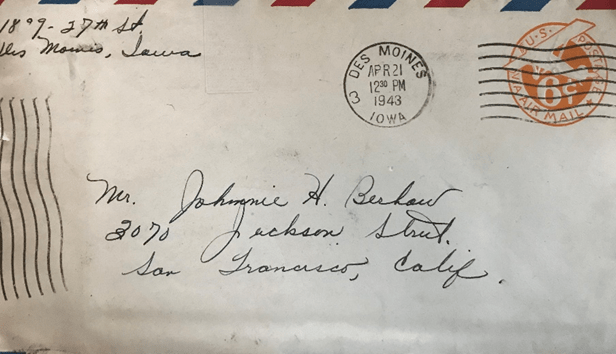 1899 - 27th St
Des Moines, Iowa
DES MOINES
APR 21
12 30 PM
1943
3
IOWA
U.S. POSTAGE
6¢
VIA AIR MAIL
Mr. Johnnie H. Berhow
3070 Jackson Street.
San Francisco, Calif.